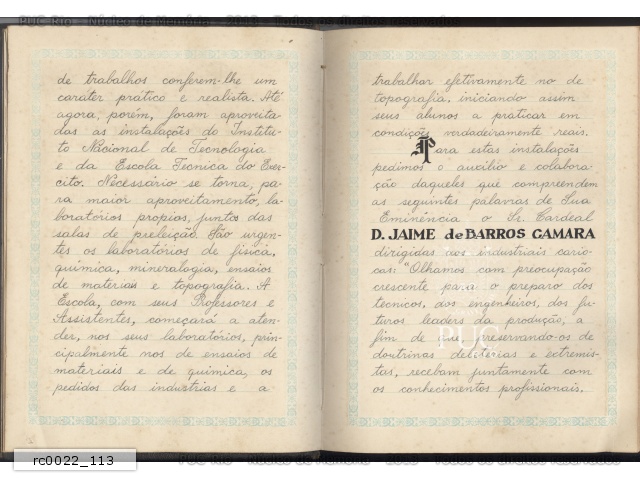 de trabalhos conferem-lhe um
caráter prático e realista. Até
agora, porém, foram aproveita-
das as instalações do Institu-
to Nacional de Tecnologia
e da Escola Tecnica do Exer-
cito. Necessário se torna, pa-
ra maior aproveitamento, la-
boratórios propios, juntos das
salas de preleição. São urgen-
tes os laboratórios de fisica,
química, mineralogia, ensaios
de materiais e topografia. A
Escola, com seus Professores e
Assistentes, começará a aten-
der, nos seus laboratórios, prin-
cipalmente nos de ensaios de
materiais e de química, os
pedidos das industrias e a
trabalhar efetivamente no de
topografia, iniciando assim
seus alunos a praticar em
condições verdadeiramente reais.
Para estas instalações
pedimos o auxílio e colabora-
ção daqueles que compreendem
as seguintes palavras de Sua
Eminência o Sr. Cardeal
D. JAIME de BARROS CAMARA
dirigidas aos industriais cario-
cas: "Olhamos com preocupação
crescente para o preparo dos
tecnicos, dos engenheiros, dos fu-
turos leaders da produção, a
fim de que, preservando-os de
doutrinas deletérias e extremis-
tas, recebam juntamente com
os conhecimentos profissionais,
PUC
rc0022_113